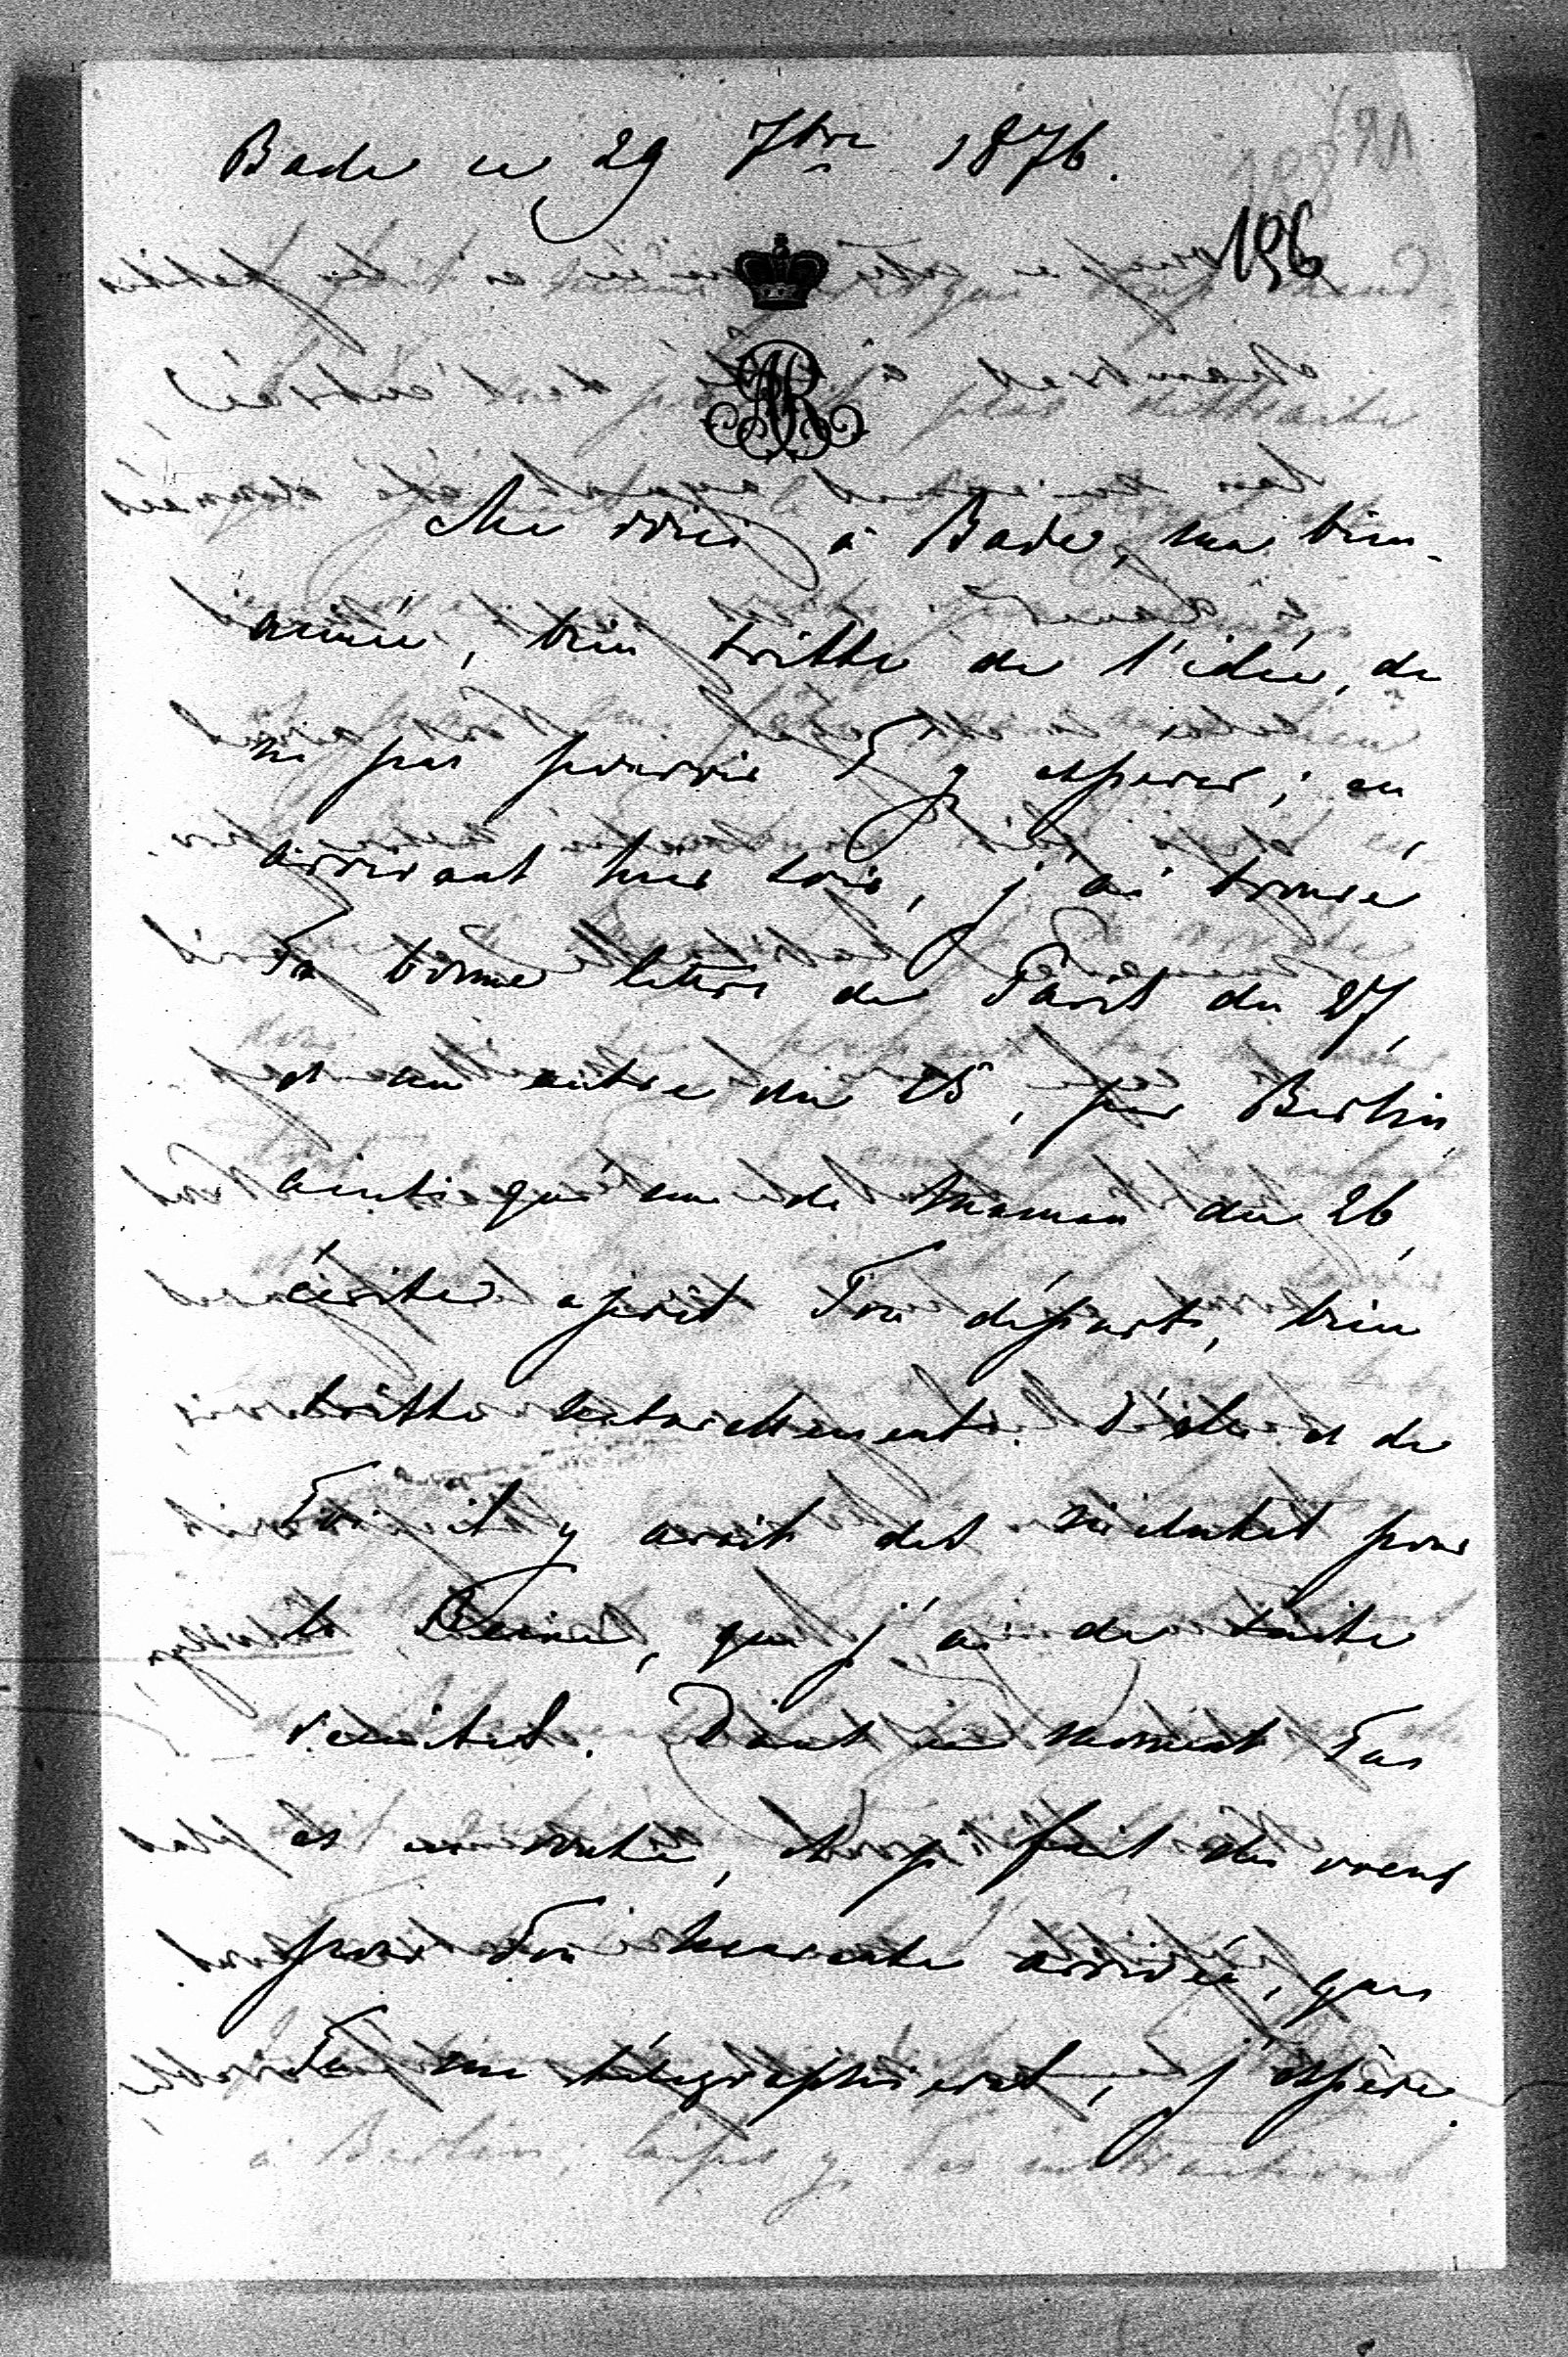 Bade ce 29 7bre 1876.
196
AR
Me voici à Bade, ma bien-
aimée, bien triste de l'idée, de
ne pas pouvoir T'y esperer; en
arrivant hier soir, j'ai trouvé
Ta bonne lettre de Paris du 27,
et un autre du 25, par Berlin,
ainsi qu'une de Maman du 26,
écrite après Ton départ, bien
triste naturellement. D'elle et de
Toi il y avait des incluses pour
la Reine, que j'ai de suite
remises. Dans ce moment Tu
es en route, et je fais des voeux
pour Ton heureuse arrivée, que
Tu me télégraphieras, j'espère.